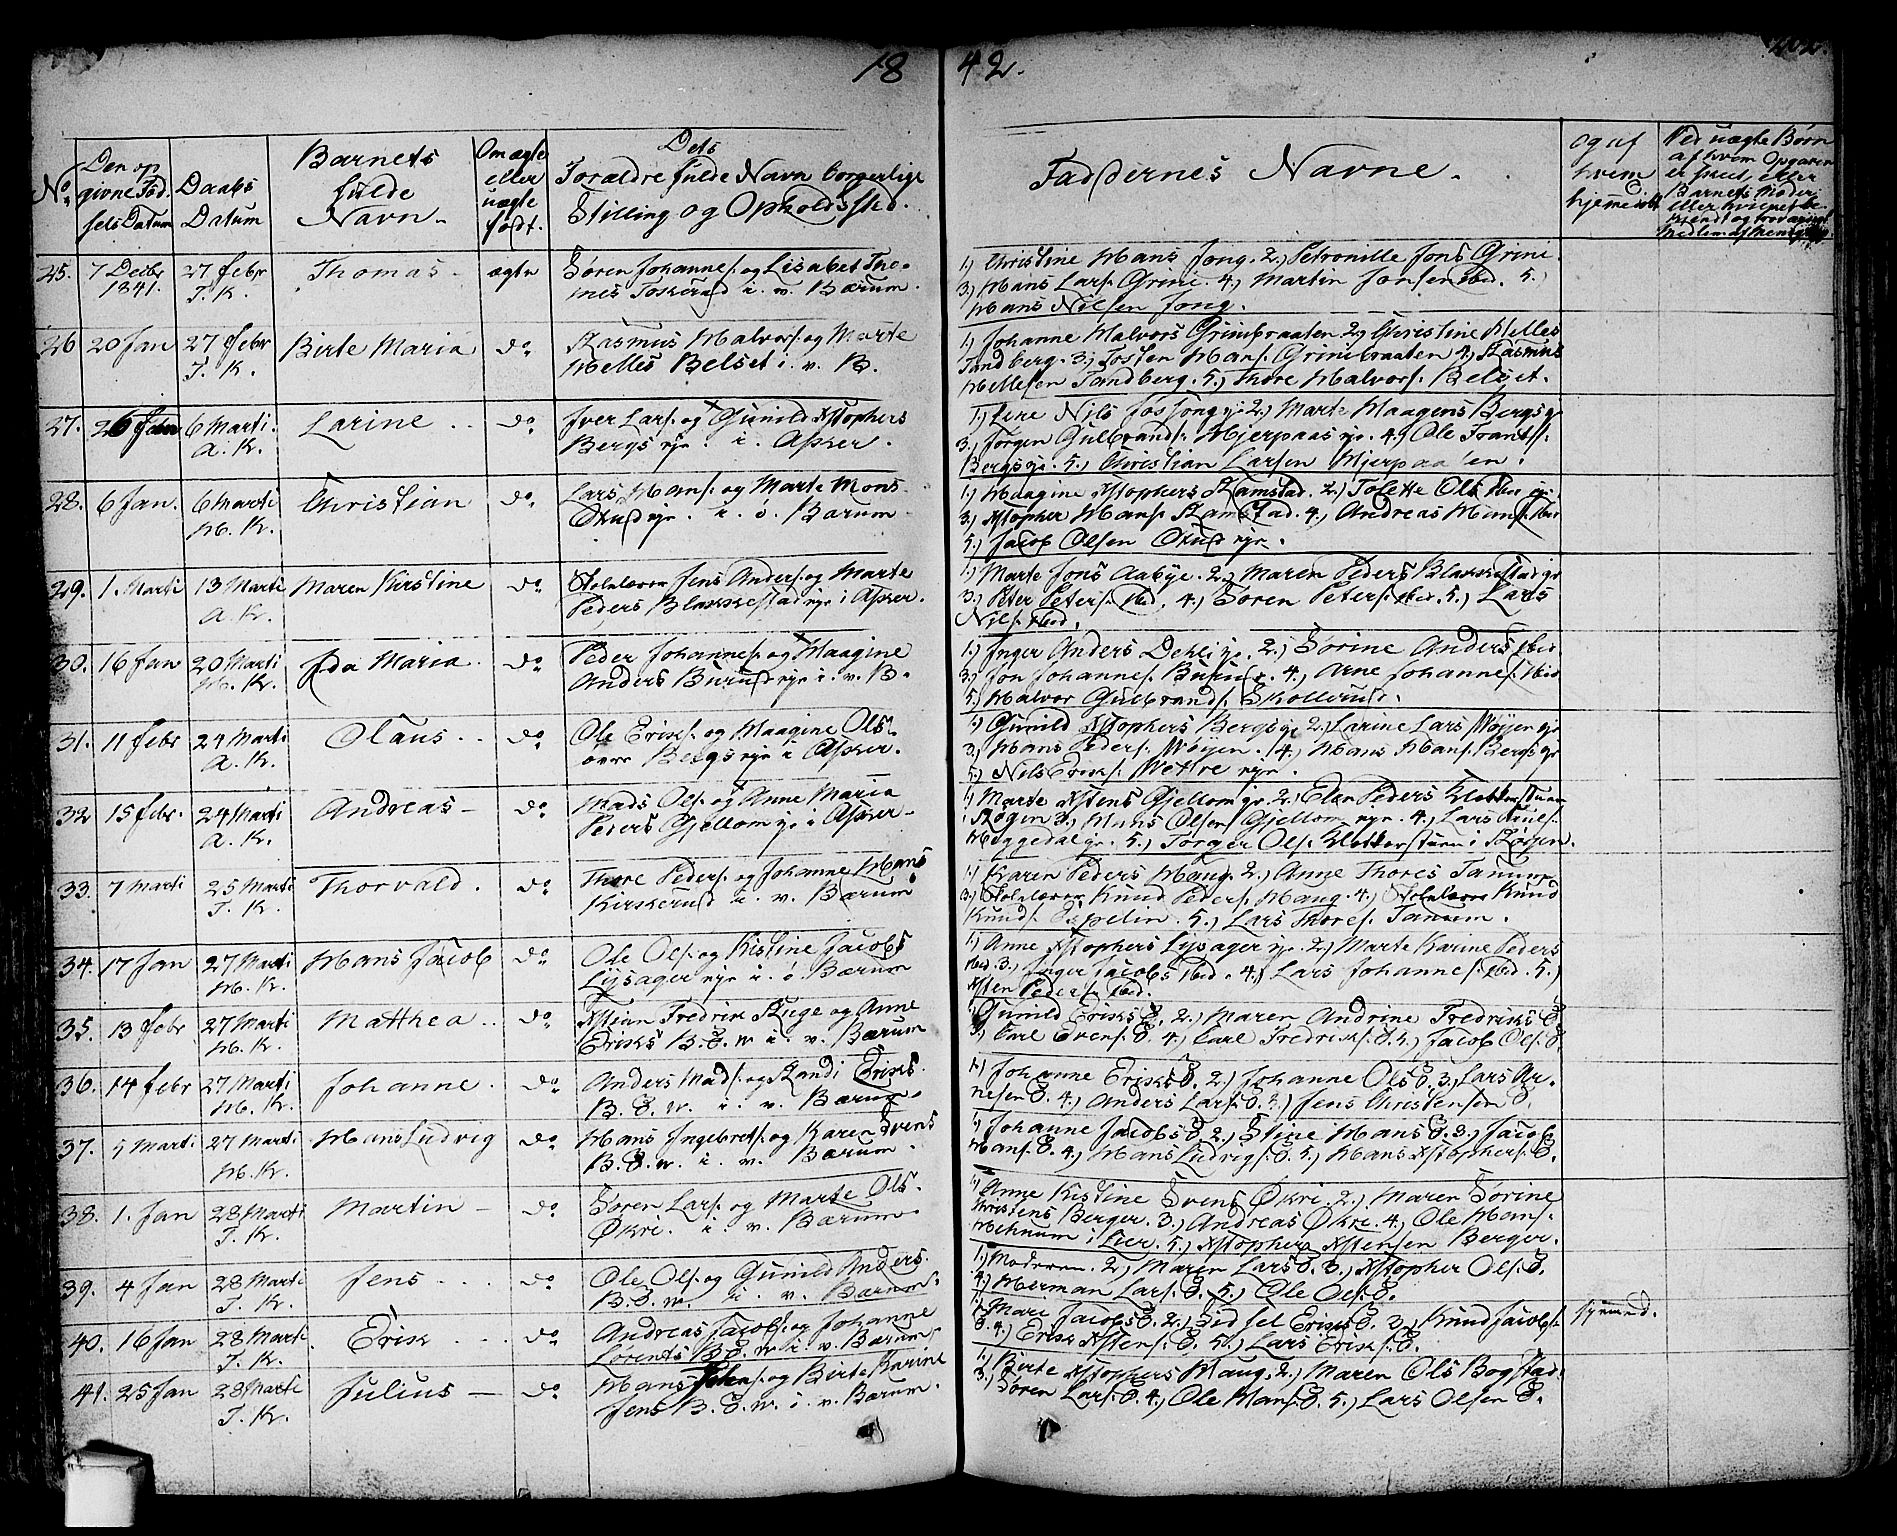 18
42.
No
Den op
givne Fød
sels Datum
Daabs
Datum
Barnets
fulde
Navn.
Om ægte
eller
uægte
født.
Dets
Forældre fulde Navn borgerlige
Stilling og Opholdssted.
Faddernes Navne.
og af
hvem
hjemedøbt
Ved uægte Børn
af hvem Opgaven
er skeet, eller
Barnets Moder
eller hvilket be-
kjendt og troværdigt
Medlem af Menigheden
25. 7 Decbr 27 febr Thomas ægte Søren Johannes. og Lisabet Tho-
1841. T. K. mes Toskerud i. v. Bærum.
1.) Christine Hans Jong. 2.) Petronille Jons Grini.
3.) Hans Lars. Grini. 4.) Martin Jonsen ibid. 5.)
Hans Nilsen Jong.
26 20 Jan 27 febr Birte Maria do Rasmus Halvors. og Marte
T. K. Helles Belset i. v. B.
1.) Johanne Halvors Grinibraaten. 2.) Christine Helles
Tandberg. 3.) Tosten Hans. Grinibraaten 4.) Rasmus
Hellesen Tandberg. 5.) Thore Halvors. Belset.
27. 26 febr 6 Marti Larine do Iver Lars. og Gunild Xstophers
A. K. Bergs eje. i. Asker.
1.) Lene Nils Jong eje 2.) Marte Haagens Bergs eje
3.) Jørgen Gulbrands. Hjerpaas eje. 4.) Ole Frants.
Bergs eje. 5.) Christian Larsen Hjerpaasen.
28. 6 Jan. 6 Marti Christian do Lars Hans. og Marte Mons
H. K. eje. i. ø. Bærum
1.) Haagine Xstophers Ramstad. 2.) Tolette Ols ibid
3.) Xstopher Hans. Ramstad. 4.) Andreas Hans. ibid
5.) Jacob Olsen eje.
29. 1. Marti 13 Marti Maren Kirstine do Skolelærer Jens Anders. og Marte
A. K. Peders Blakkestad eje i Asker.
1.) Marte Jons Aabye. 2.) Maren Peders Blakkestad eje
3.) Peter Peters. ibid. 4.) Søren Peters. ibid. 5.) Lars
Nils. ibid.
30. 16 Jan 20 Marti Ida Maria do Peder Johannes. og Haagine
H. K. Anders Burud eje i. v. B.
1.) Inger Anders Dehli eje. 2.) Sørine Anders ibid
3.) Jon Johannes. Burud. 4.) Arne Johannes. ibid
5.) Halvor Gulbrands. Skollerud.
31. 11 febr 24 Marti Olaus do Ole Eriks. og Haagine Ols
A. K. øvre Bergs eje i Asker.
1.) Gunild Xstophers Bergs eje 2.) Larine Lars Wøjen eje
3.) Hans Peders. Wøjen. 4.) Hans Hans. Bergs eje
5.) Nils Eriks. Wettre eje.
32 15 febr. 24 Marti Andreas do Mads Ols. og Anne Maria
A. K. Peders Gjellom eje i Asker
1.) Marte Xstens Gjellom eje. 2.) Elen Peders
i Røgen 3.) Hans Olsen Gjellom eje. 4.) Lars
5.) Torger Ols. i Røgen.
33. 7 Marti 25 Marti Thorvald. do Thore Peders. og Johanne Hans
T. K. Kirkerud i. v. Bærum
1.) Karen Peders Haug. 2.) Anne Thores Tanum
3.) Skolelærer Knud Peders. Haug. 4.) Skolelærer Knud
Knuds. Espelin. 5.) Lars Thores. Tanum.
34. 17 Jan 27 Marti Hans Jacob do Ole Ols. og Kistine Jacobs
H. K. Lysager eje i. ø. Bærum
1.) Anne Xstophers Lysager eje. 2.) Marte Karine Peders
ibid. 3.) Inger Jacobs ibid. 4.) Lars Johannes. ibid. 5.)
Xsten Peders. ibid.
35. 13 febr 27 Marti Mathea do Xstian Fredrik Ruge og Anne
H. K. Eriks B. E. W. i. v. Bærum
1.) Gunild Eriks E. 2.) Maren Andrine Fredriks E
3.) Carl Evens. E. 4.) Carl Fredriks. E. 5.) Jacob Ols. E.
36. 14 febr 27 Marti Johanne do Anders Mads. og Randi Eriks.
H. K. B. E. W. i. v. Bærum.
1.) Johanne Eriks E. 2.) Johanne Ols E. 3.) Lars Ar-
nesen E. 4.) Anders Lars. E. 5.) Jens Christensen E.
37. 5 Marti 27 Marti Hans Ludvig do Hans Ingebrets. og Karen Svens
H. K. B. E. W. i. v. Bærum.
1.) Johanne Jacobs E 2.) Stine Hans E. 3.) Jacob
Hans. E. 4.) Hans Ludvigs. E. 5.) Hans Xstophers. E.
38. 1. Jan 28 Marti Martin do Søren Lars. og Marte Ols.
T. K. Økri. i. v. Bærum.
1.) Anne Kistine Svens Økri. 2.) Maren Sørine
Christens Berger. 3.) Andreas Økri. 4.) Ole Hans.
i Lier. 5.) Xstopher Xstensen Berger.
39. 4 Jan 28 Marti Jens do Ole Ols. og Gunild Anders.
T. K. B. E. W. i. v. Bærum.
1.) Moderen. 2.) Maren Lars E. 3.) Xstopher Ols. E.
4.) Herman Lars. E. 5.) Ole Ols. E.
40. 16 Jan 28 Marti Erik do Andreas Jacobs. og Johanne
T. K. Lørents B. E. W. i. v. Bærum.
1.) Mari Jacobs E. 2.) Sidsel Eriks E. 3.) Knud Jacobs.
E. 4.) Erik Xstens. E. 5.) Lars Eriks. E.
41. 25 Jan 28 Marti Julius do Hans og Birte Karine
T. K. Jens B. E. W. i. v. Bærum.
1.) Birte Xstophers Haug. 2.) Maren Ols Bogstad.
3.) Søren Lars. E. 4.) Ole Hans. E. 5.) Lars Olsen E.